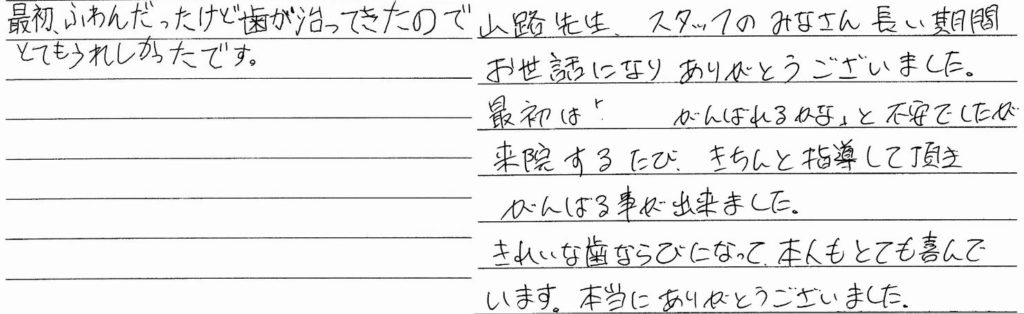 最初、ふわんだったけど歯が治ってきたので
とてもうれしかったです。
山路先生、スタッフのみなさん長い期間
お世話になりありがとうございました。
最初は「 がんばれるかな」と不安でしたが
来院するたび、きちんと指導して頂き
がんばる事が出来ました。
きれいな歯ならびになって、本人もとても喜んで
います。本当にありがとうございました。